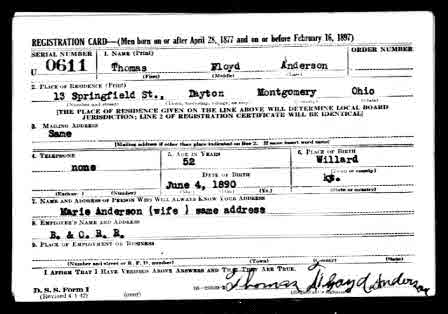 REGISTRATION CARD—(Men born on or after April 28, 1877 and on or before February 16, 1897)
SERIAL NUMBER 1. NAME (Print) ORDER NUMBER
U 0611 Thomas Floyd Anderson
(First) (Middle) (Last)
2. PLACE OF RESIDENCE (Print)
13 Springfield St., Dayton Montgomery Ohio
(Number and street) (Town, township, village, or city) (County) (State)
[THE PLACE OF RESIDENCE GIVEN ON THE LINE ABOVE WILL DETERMINE LOCAL BOARD
JURISDICTION; LINE 2 OF REGISTRATION CERTIFICATE WILL BE IDENTICAL]
3. MAILING ADDRESS
Same
[Mailing address if other than place indicated on line 2. If same insert word same]
4. TELEPHONE 5. AGE IN YEARS 6. PLACE OF BIRTH
none 52 Willard
DATE OF BIRTH (Town or county)
June 4, 1890 ks.
(Exchange) (Number) (Mo.) (Day) (Yr.) (State or country)
7. NAME AND ADDRESS OF PERSON WHO WILL ALWAYS KNOW YOUR ADDRESS
Marie Anderson (wife) same address
8. EMPLOYER'S NAME AND ADDRESS
B. & O. R. R.
9. PLACE OF EMPLOYMENT OR BUSINESS
(Number and street or R. F. D. number) (Town) (County) (State)
I AFFIRM THAT I HAVE VERIFIED ABOVE ANSWERS AND THAT THEY ARE TRUE.
D. S. S. Form 1
(Revised 4-1-42) (over)
Thomas Floyd Anderson